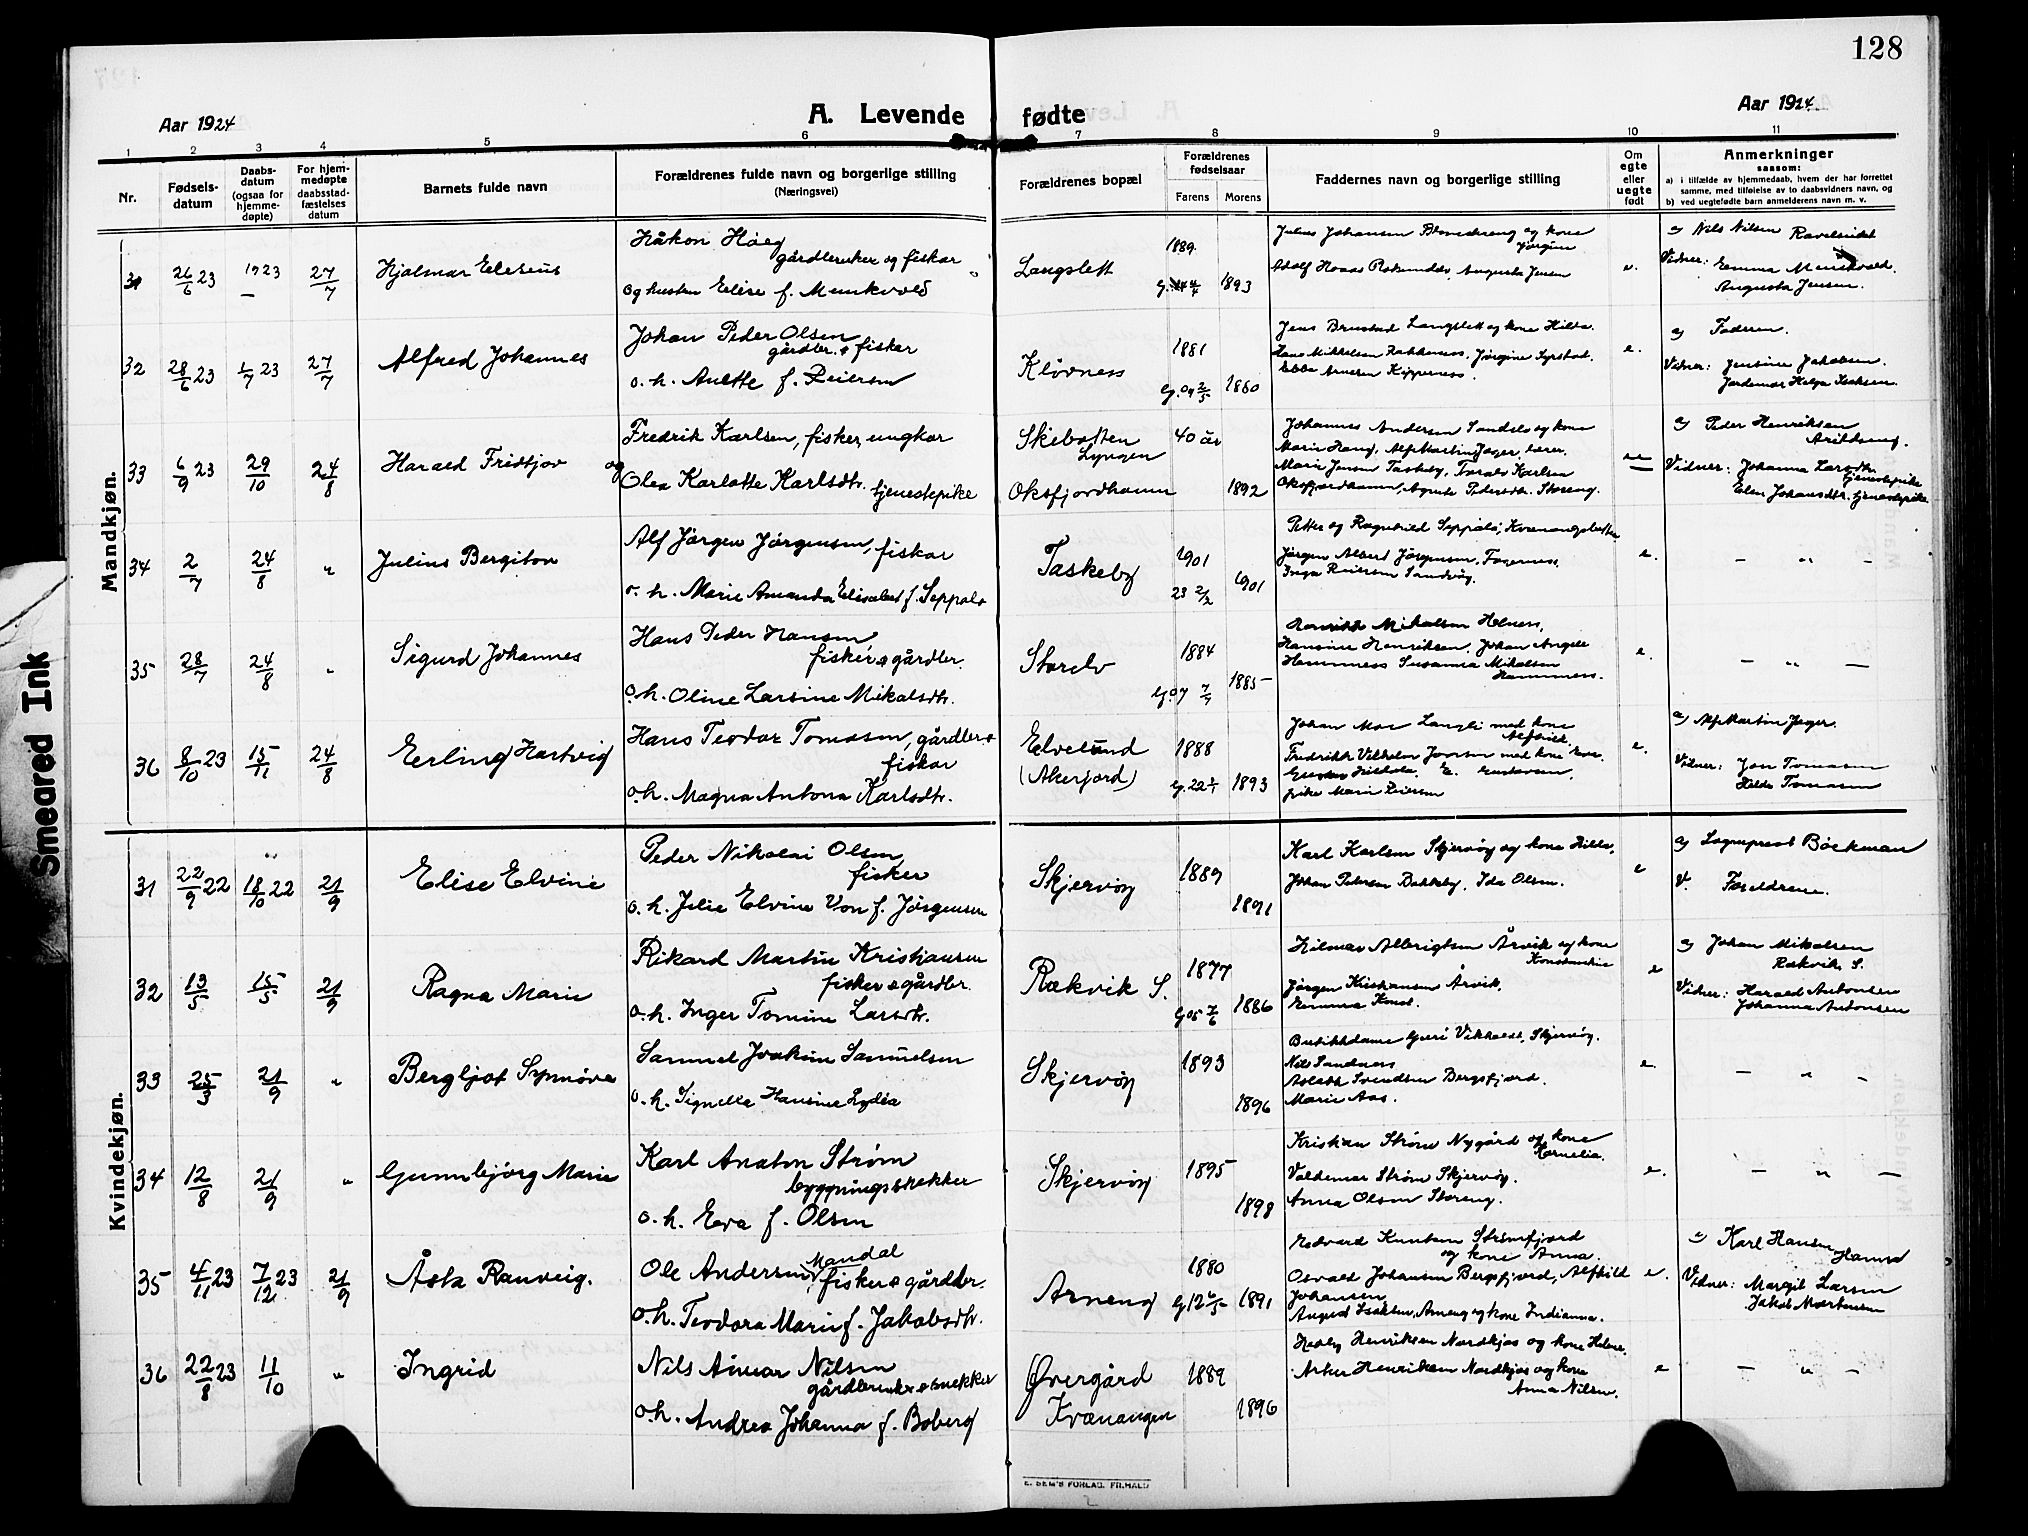 128
A. Levende fødte
Aar 1924
Aar 1924
1 2 3 4 5 6 7 8 9 10 11
Nr.
Fødsels-
datum
Daabs-
datum
(ogsaa for
hjemme-
døpte)
For hjem-
medøpte
daabsstad-
fæstelses
datum
Barnets fulde navn
Forældrenes fulde navn og borgerlige stilling
(Næringsvei)
Forældrenes bopæl
Forældrenes
fødselsaar
Farens Morens
Faddernes navn og borgerlige stilling
Om
egte
eller
uegte
født
Anmerkninger
saasom:
a) i tilfælde av hjemmedaab, hvem der har forrettet
samme, med tilføielse av to daabsvidners navn, og
b) ved uegtefødte barn anmelderens navn m. v.
Mandkjøn.
31 26/6 23 1923 27/7 Hjalmar Elesius
Håkon Høeg
gårdbruker og fiskar
og hustru Elise f. Munkvold
Langslett
1889
1893
Adolf Haas Rotsundelv, Augusta Jensen
e.
a) Nils Nilsen Ravelseidet
Vidner: Emma Munkvold
Augusta Jensen.
32 28/6 23 1/7 23 27/7 Alfred Johannes
Johan Peder Olsen
gårdbr. & fisker
o. h. Anette f. Peiersen
Kløvness
1881
G. 04 2/5 1880
Jens Brustad Langslett og kone Hilda.
Hans Mikkelsen Rakkenes, Jørgine Lyrstad.
Ebba Arnesen Kippernes.
e.
a) Faderen.
Vidner: Jensine Jakobsen.
Jordemor Helga Isaksen.
33 6/9 23 29/10 24/8 Harald Fridtjov
Fredrik Karlsen, fisker, ungkar
og Olea Karlotte Karlsdtr. tjenestepike
Skibotten
Lyngen
Oksfjordhamn
40 år
1892
Johannes Andersen Sandelv og kone
Marie Haug, Alf Martin Jæger, lærer.
Marie Jensen Taskeby, Toralv Karlsen
Oksfjordhamn, Agnete Pedersdtr. Storeng.
ue
a) Peder Henriksen
Arildseng.
Vidner: Johanna Larsdtr.
tjenestepike
Elen Johansdtr. tjenestepike
34 2/7 24/8 " Julius Bergiton
Alf Jørgen Jørgensen, fiskar
o. h. Marie Amanda Elisabet f. Seppola
Taskeby
1901
23 2/2 1901
Petter og Ragnhild Seppola, Kvænangsbotten
Jørgen Albert Jørgensen, Fagernes.
Inga Reiersen Sandvåg.
e.
— " —
35 28/7 24/8 " Sigurd Johannes
Hans Peder Hansen
fisker & gårdbr.
o. h. Oline Larsine Mikalsdtr.
Storelv
1884
G. 07 7/7 1885
Henrikke Mikalsen Helness,
Hansine Henriksen, Johan Angell
Hamnness Susanna Mikalsen
Hamnness.
e.
— " —
36 8/10 23 15/11 24/8 Erling Hartvig
Hans Teodor Tomasen, gårdbr. &
fiskar
o. h. Magna Antona Karlsdtr.
Elvelund
(Akerfjord)
1888
G. 22 1/1 1893
Johan Moe Langli med kone
Alfhild.
Fredrikk Vilhelm Joorsen med kone
pike Marie Peiersen
e.
a) Alf Martin Jæger.
Vidner: Jon Tomasen
Hilda Tomasen
Kvindekjøn.
31 22/9 22 18/10 22 21/9 Elise Elvine
Peder Nikolai Olsen,
fisker
o. h. Julie Elvine Von f. Jørgensen
Skjervøy
1889
1891
Karl Karlsen Skjervøy og kone Hilda.
Johan Petersen Bakkeby, Ida Olsen.
e
a) Sogneprest Böckman
V. Foreldrene.
32 13/5 15/5 21/9 Ragna Marie
Rikard Martin Kristiansen
fisker & gårdbr.
o. h. Inger Tomine Larsdtr.
Rækvik S.
1877
G. 05 7/6 1886
Hilmar Albrigtsen Årvik og kone
Konstanse
Jørgen Kristiansen Årvik.
Emma Knud.
e
a) Johan Mikalsen
Rækvik S.
Vidner: Harald Antonsen
Johanna Antonsen
33 25/3 21/9 " Bergljot Synnøve
Samuel Joakim Samuelsen
o. h. Signelle Hansine Lydia
Skjervøy
1893
1896
Butikkdame Guri Vikholt, Skjervøy.
Nils Sandnes
Aslath Svendsen Bergsfjord.
Marie Aas.
e.
— " —
34 12/8 21/9 " Gunnbjørg Marie
Karl Anatn Strøm
byggningssnekker
o. h. Eva f. Olsen
Skjervøy
1895
1898
Kristian Strøm Nygård og kone
Kornelia.
Valdemar Strøm Skjervøy.
Anna Olsen Storeng.
e.
— " —
35 4/11 23 7/12 23 21/9 Åsta Ranveig.
Ole Andersen Mandal
fisker & gårdbr.
o. h. Teodora Marie f. Jakobsdtr.
Arneng
1880
G. 12 6/5 1891
Edvard Knutsen Strømfjord
og kone Anna.
Osvald Johansen Bergsfjord, Alfhild
Johansen
August Isaksen, Arneng og kone Indianna.
e.
a) Karl Hansen
Hamnd
Vidner: Margit Larsen
Jakob Mortensen
36 22/8 23 11/10 " Ingrid
Nils Aimar Nilsen
gårdbruker & snekker
o. h. Andrea Johanna f. Boberg
Øvergård
Kvænangen
1889
1896
Hedley Henriksen Nordkjos og kone Helene.
Artur Henriksen Nordkjos og kone
Anna Nilsen.
e
— " —
E. SEM'S FORLAG. FR.HALD
Smeared Ink